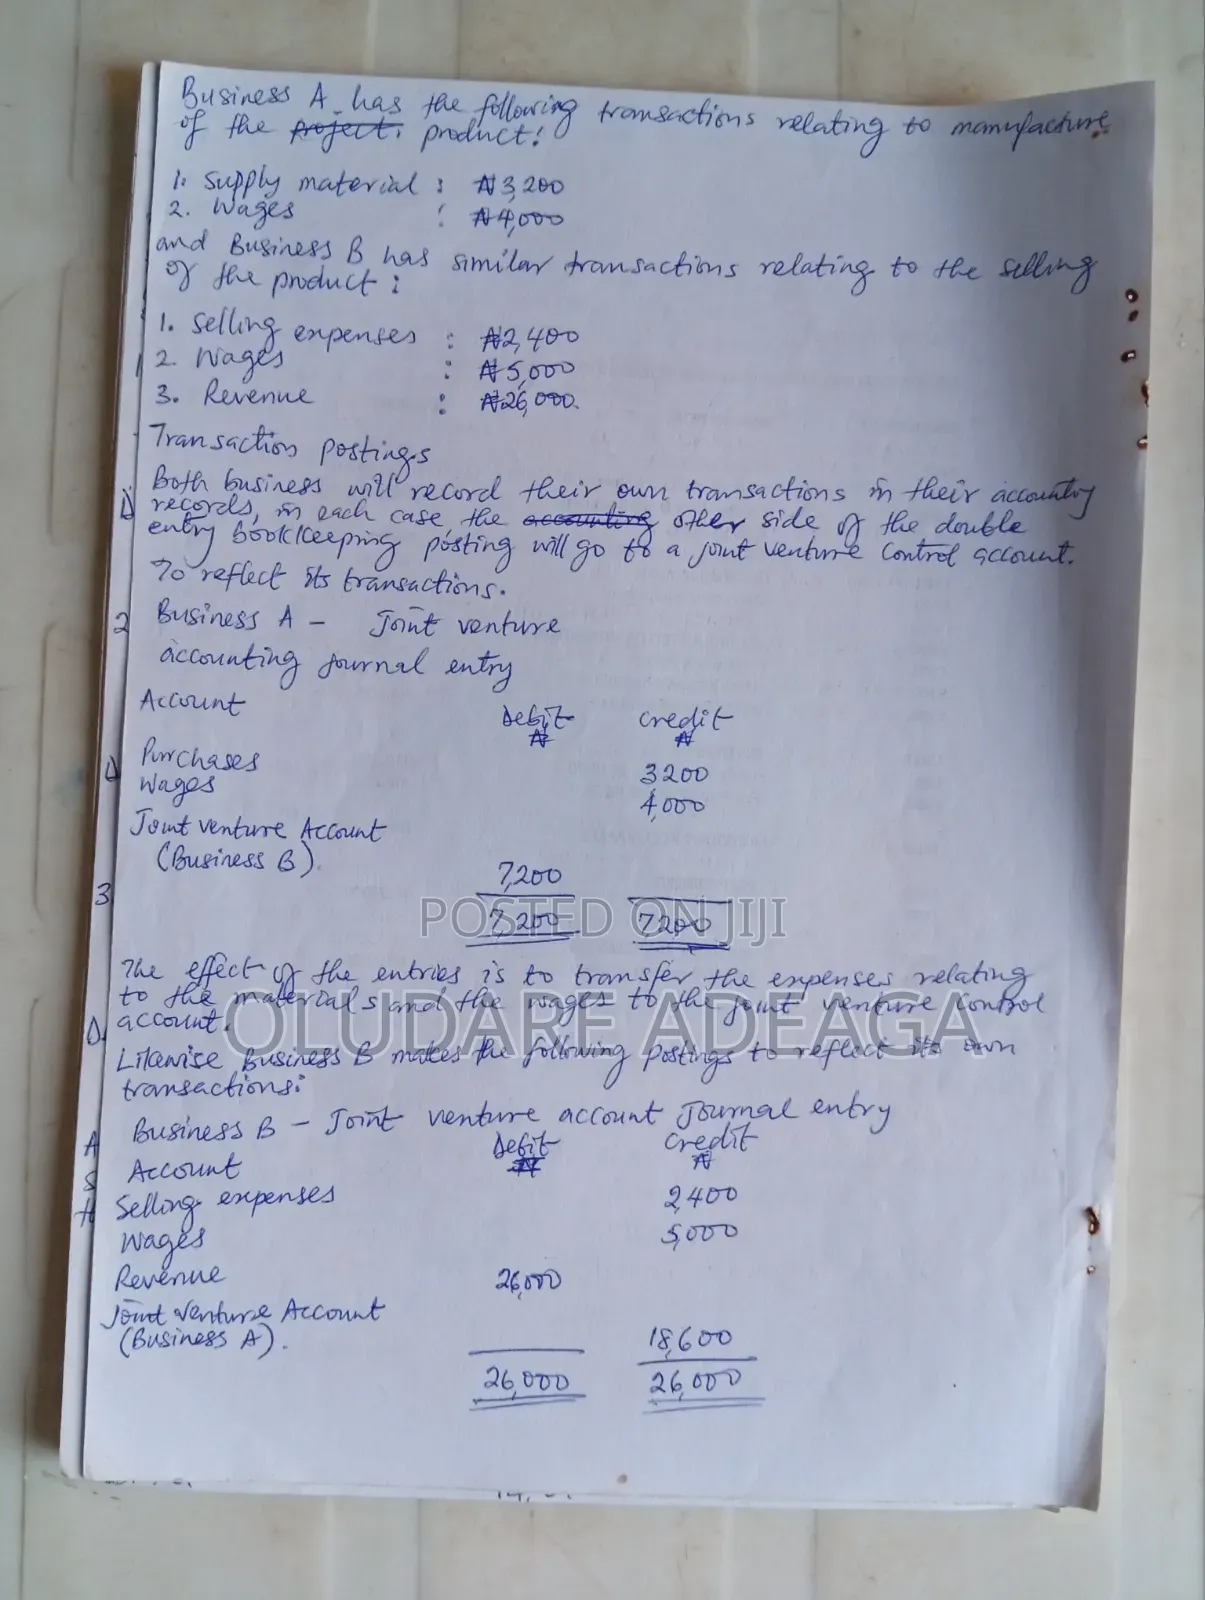 Business A has the following transactions relating to manufacture
of the project. product:
1. Supply material : ₦3,200
2. Wages : ₦4,000
and Business B has similar transactions relating to the selling
of the product:
1. Selling expenses : ₦2,400
2. Wages : ₦5,000
3. Revenue : ₦26,000.
Transaction postings
Both business will record their own transactions in their accounting
records, in each case the accounting other side of the double
entry bookkeeping posting will go to a joint venture control account.
To reflect its transactions.
Business A - Joint venture
accounting journal entry
Account Debit Credit
₦ ₦
Purchases 3200
Wages 4,000
Joint venture Account
(Business B).
7,200
7,200 7200
POSTED ON JIJI
The effect of the entries is to transfer the expenses relating
to the materials and the wages to the joint venture control
account.
OLUDARE ADEAGA
Likewise Business B makes the following postings to reflect its own
transactions:
Business B - Joint venture account Journal entry
Debit Credit
Account ₦ ₦
Selling expenses 2,400
Wages 5,000
Revenue 26,000
Joint venture Account
(Business A). 18,600
26,000 26,000